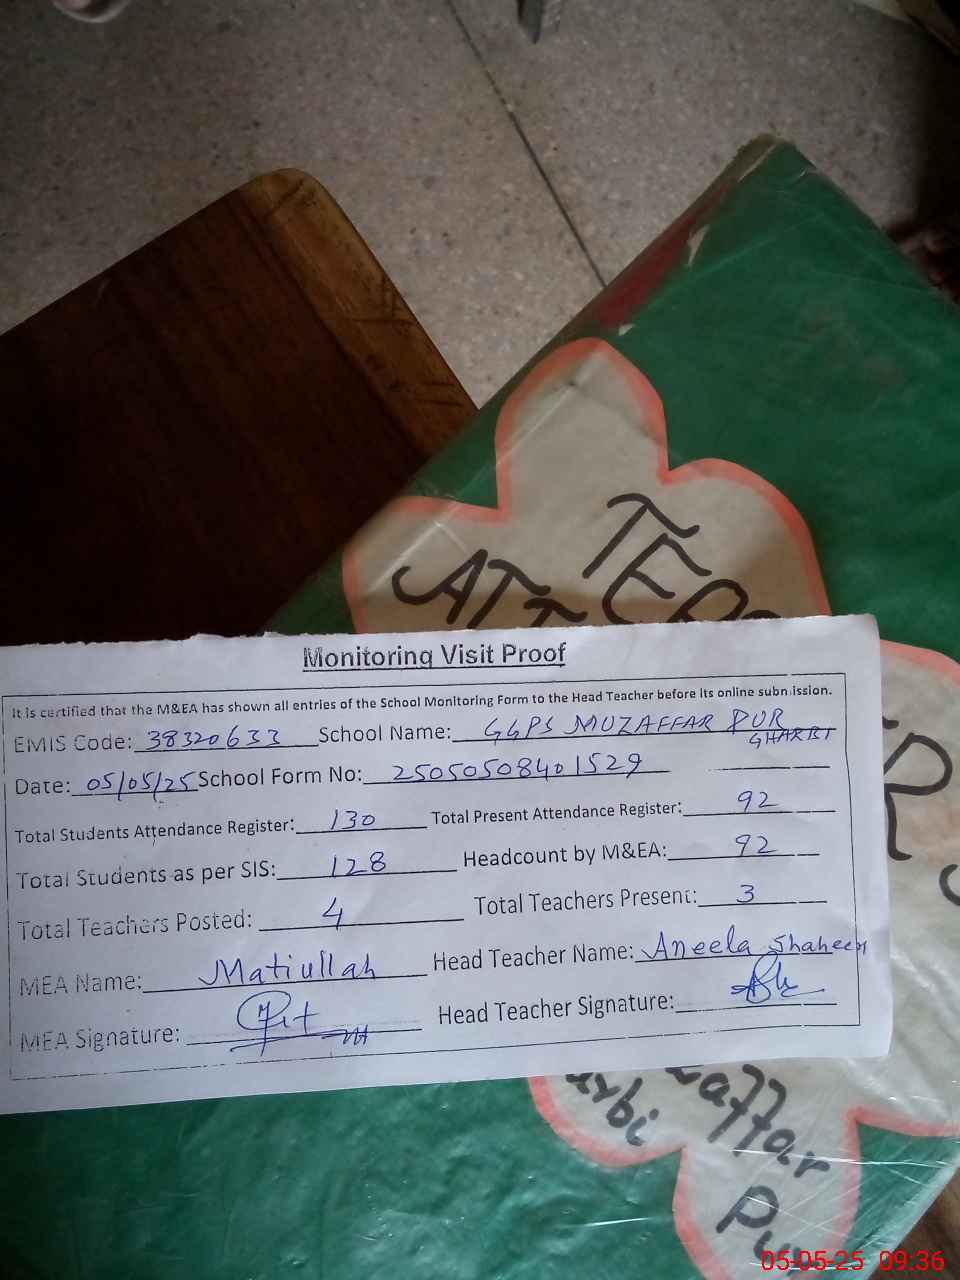 TE
ATT
Monitoring Visit Proof
It is certified that the M&EA has shown all entries of the School Monitoring Form to the Head Teacher before its online submission.
EMIS Code: 38320633 School Name: GGPS MUZAFFAR PUR
GHARBI
Date: 05/05/25 School Form No: 25050508401529
Total Students Attendance Register: 130 Total Present Attendance Register: 92
Total Students as per SIS: 128 Headcount by M&EA: 92
Total Teachers Posted: 4 Total Teachers Present: 3
MEA Name: Matiullah Head Teacher Name: Aneela Shaheen
MEA Signature: Head Teacher Signature:
affar
rbi
Pu
05-05-25 09:36